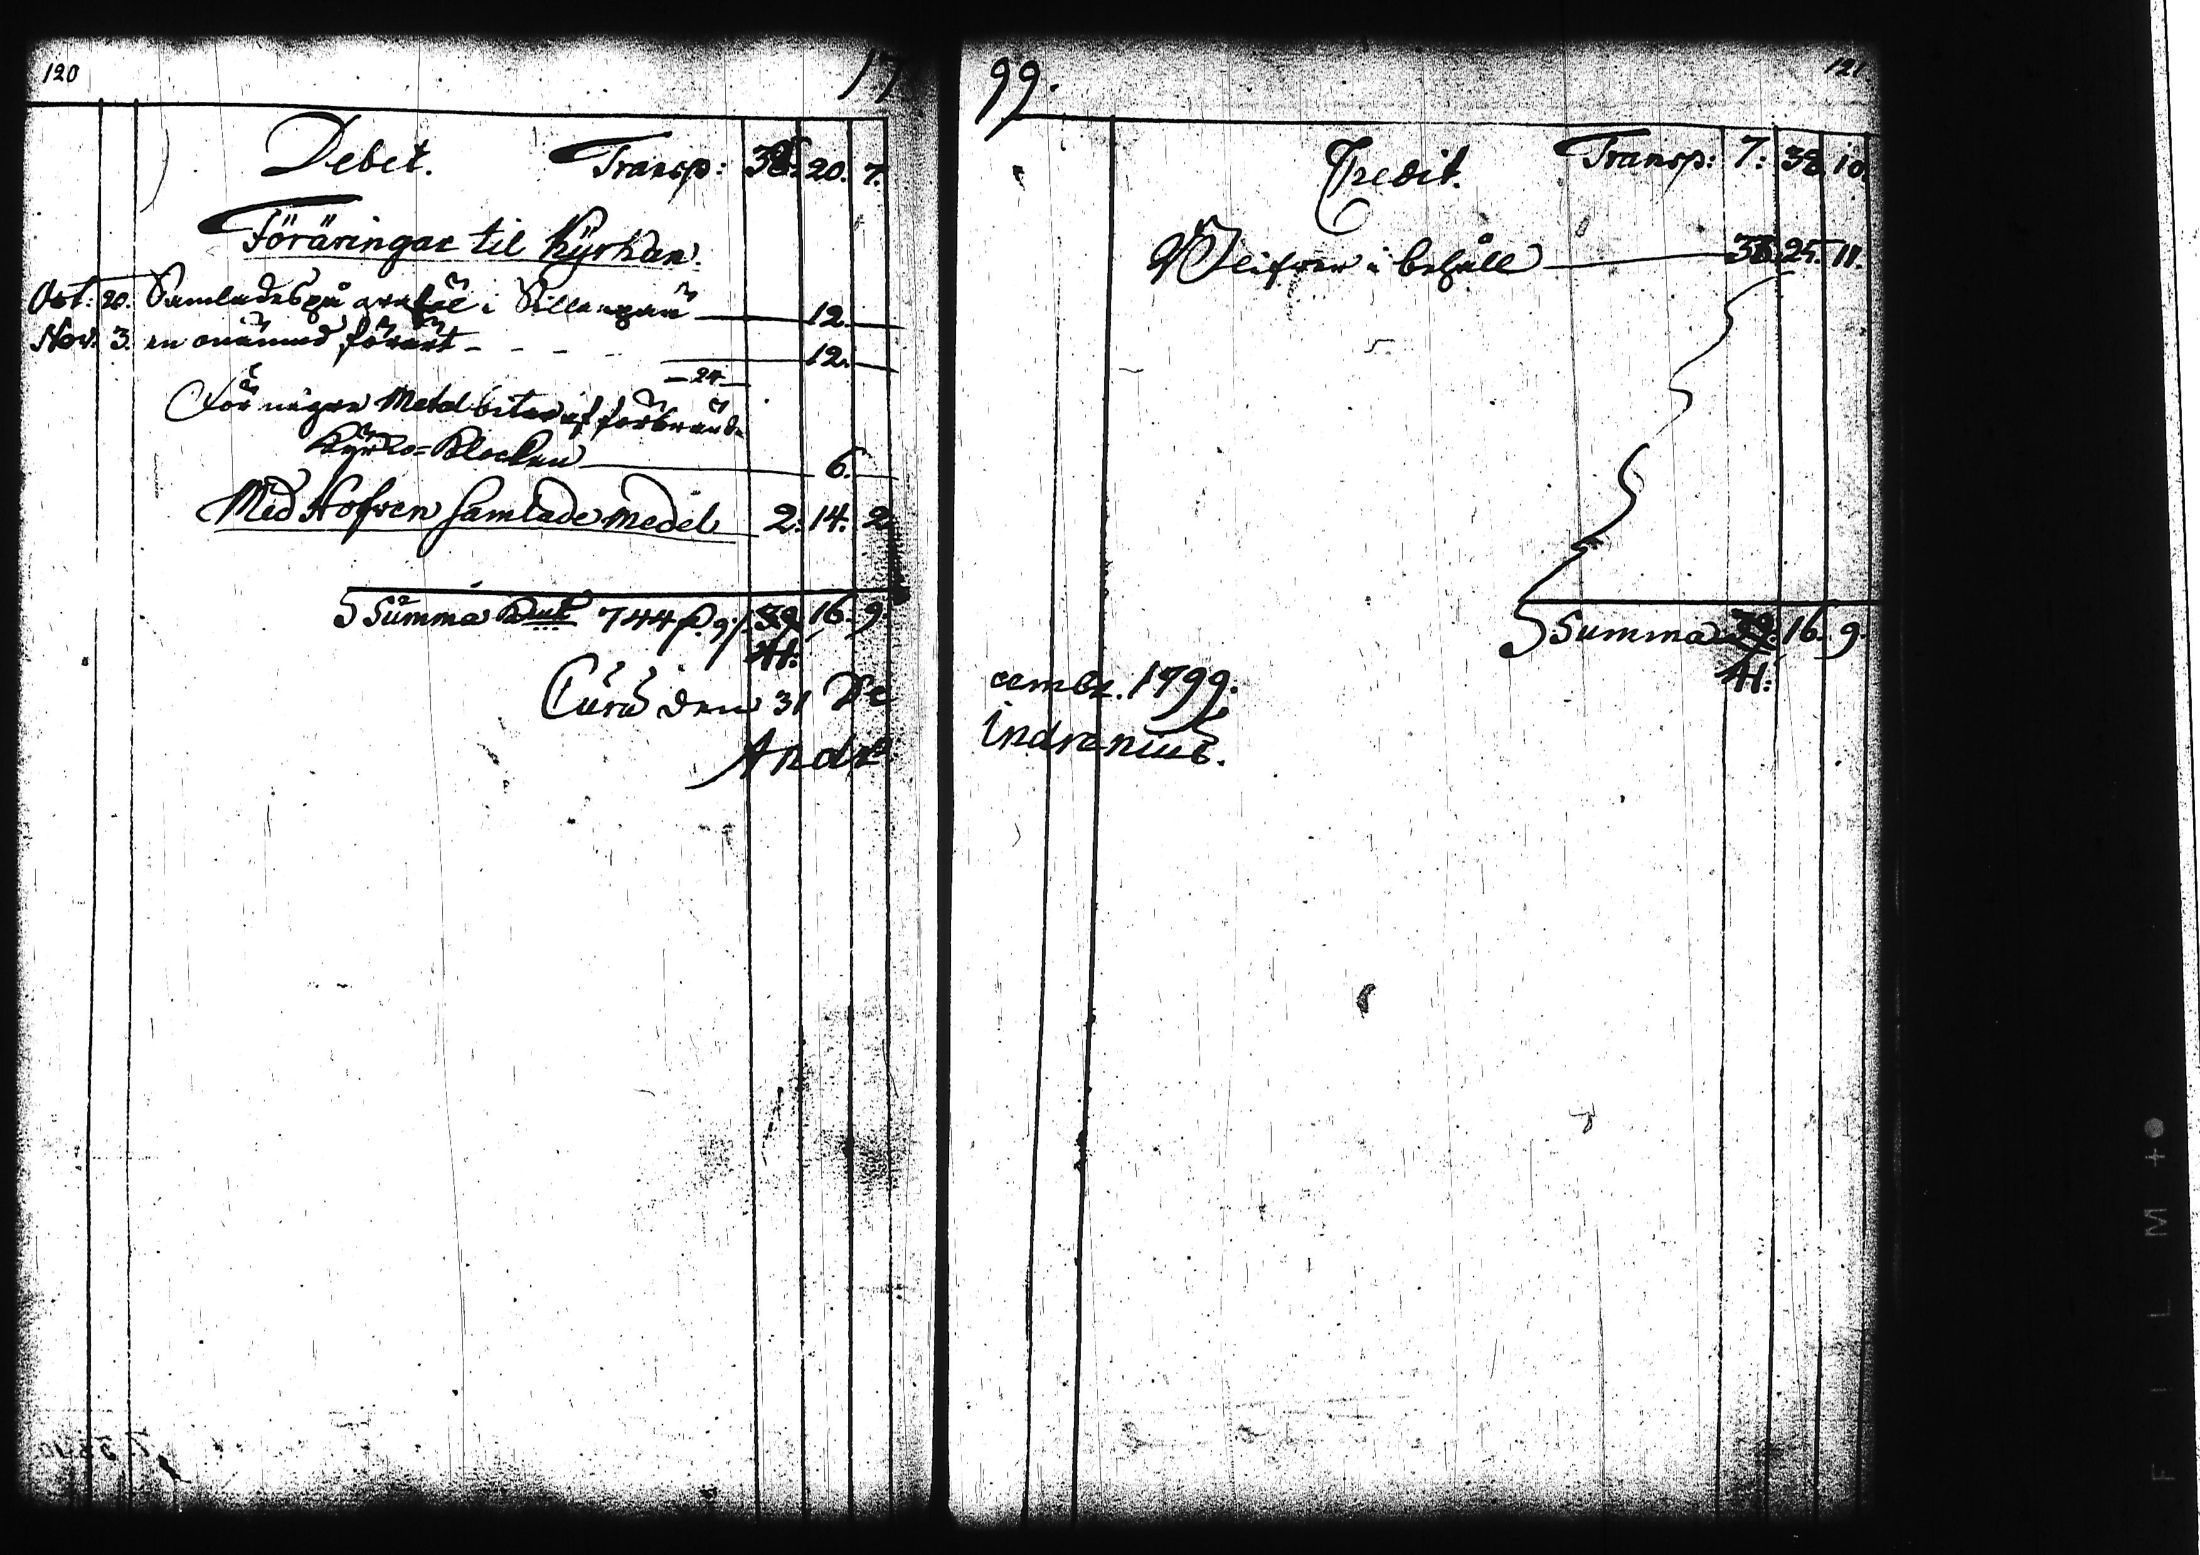 120
17
Debet. Transp: 38. 20. 7.
Föräringar til Kyrkan.
Oct: 20. Samlades på graföl i Sillanpää 12.
Nov. 3. en onämnd förärt 12.
24
För några Metal bitar af förbrända
Kyrko=Klockan 6.
Med Hofven samlade medel 2. 14. 2.
Summa 744 39. 16. 9.
41.
den 31 De
Andr:
99.
121
Credit. Transp: 7: 38. 10.
Blifver i behåll 33. 25. 11.
Summa 39. 16. 9.
41.
cembr. 1799.
Indrenius.
FILM